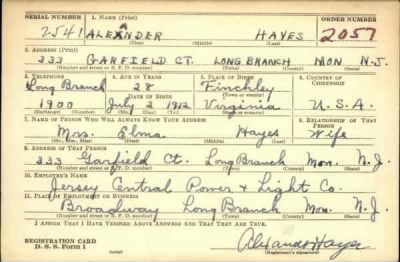 SERIAL NUMBER 1. NAME (Print) ORDER NUMBER
2541 ALEXANDER HAYES 2057
(First) (Middle) (Last)
2. ADDRESS (Print)
333 GARFIELD CT. LONG BRANCH MON N.J.
(Number and street or R. F. D. number) (Town) (County) (State)
3. TELEPHONE 4. AGE IN YEARS 5. PLACE OF BIRTH 6. COUNTRY OF CITIZENSHIP
Long Branch 28 Finchley
DATE OF BIRTH
1900 July 2 1912 Virginia U.S.A.
(Exchange) (Number) (Mo.) (Day) (Yr.) (State or country)
7. NAME OF PERSON WHO WILL ALWAYS KNOW YOUR ADDRESS 8. RELATIONSHIP OF THAT PERSON
Mrs. Elma Hayes Wife
(Mr., Mrs., Miss) (First) (Middle) (Last)
9. ADDRESS OF THAT PERSON
333 Garfield Ct. Long Branch Mon. N.J.
(Number and street or R. F. D. number) (Town) (County) (State)
10. EMPLOYER'S NAME
Jersey Central Power + Light Co.
11. PLACE OF EMPLOYMENT OR BUSINESS
Broadway Long Branch Mon. N.J.
(Number and street or R. F. D. number) (Town) (County) (State)
I AFFIRM THAT I HAVE VERIFIED ABOVE ANSWERS AND THAT THEY ARE TRUE.
REGISTRATION CARD
D. S. S. Form 1 (Registrant's signature)
Alexander Hayes